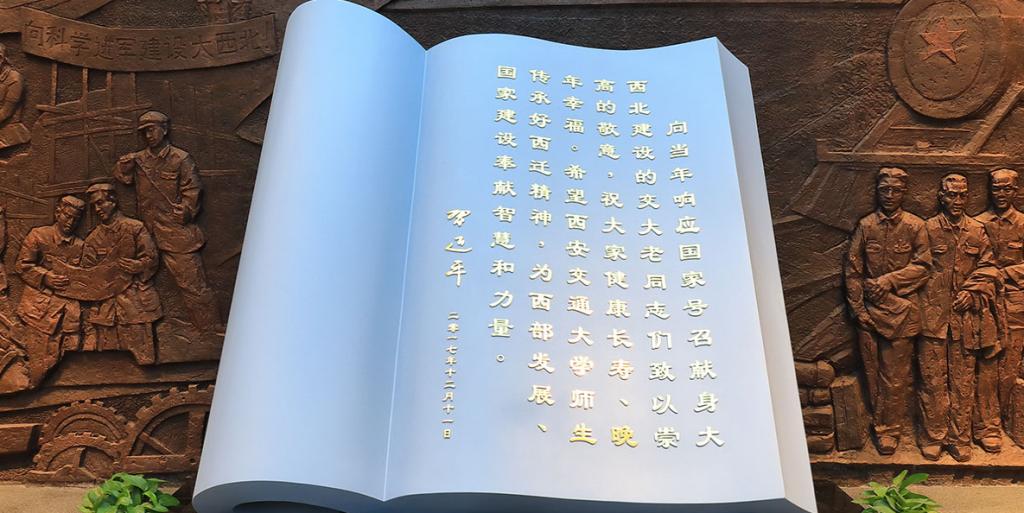 向科学进军建设大西北
向当年响应国家号召献身大
西北建设的交大老同志们致以崇
高的敬意，祝大家健康长寿、晚
年幸福。希望西安交通大学师生
传承好西迁精神，为西部发展、
国家建设奉献智慧和力量。
习近平
二〇一七年十二月十一日